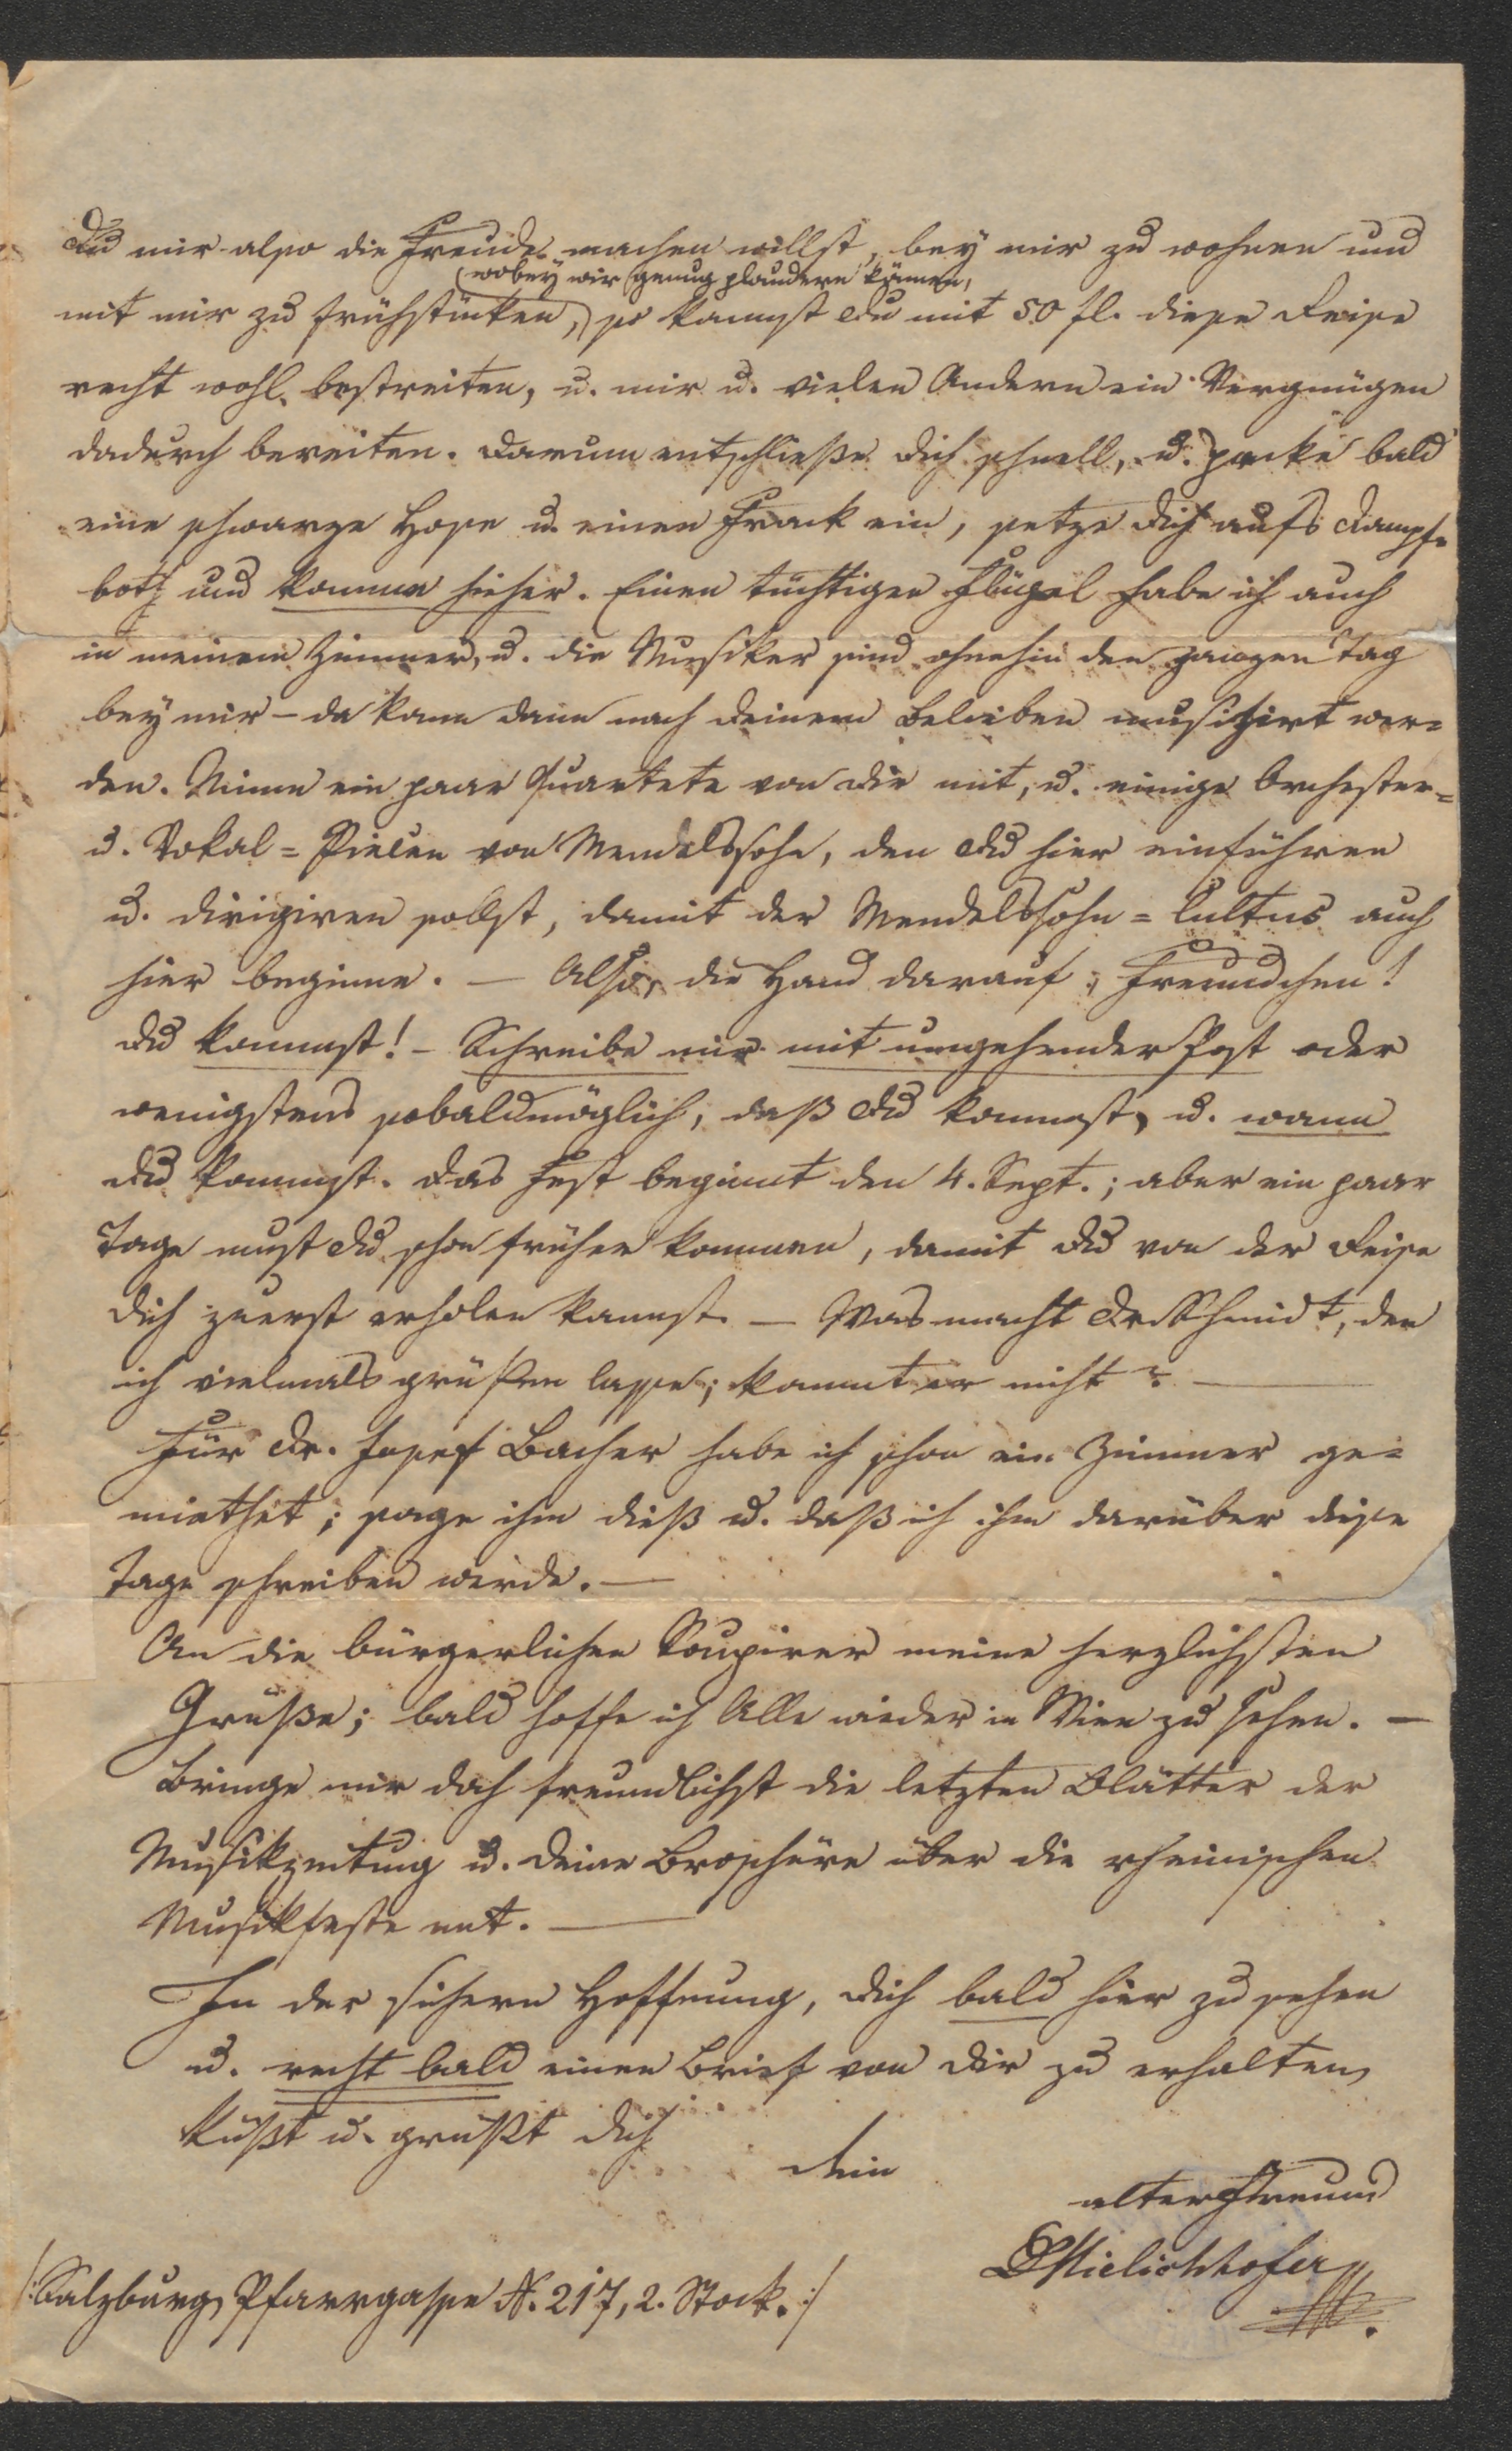 Du mir also die Freude machen willst, bey mir zu wohnen und
(wobey wir genug plaudern können,
mit mir zu frühstücken,) so kannst Du mit 50 fl. diese Reise
recht wohl bestreiten, u. mir u. vielen Andern ein Vergnügen
dadurch bereiten. Darum entschließe Dich schnell, u. packe bald
eine schwarze Hose u. einen Frack ein, setze Dich aufs Dampf-
both und komme hieher. Einen tüchtigen Flügel habe ich auch
in meinem Zimmer, u. die Musiker sind ohnehin den ganzen Tag
bey mir – da kann dann nach Deinem Belieben musizirt wer=
den. Nimm ein paar Quartete von Dir mit, u. einige Orchester=
u. Vokal=Piecen von Mendelssohn, den Du hier einführen
u. dirigiren sollst, damit der Mendelssohn=Cultus auch
hier beginne. – Also, die Hand darauf, Freundchen!
Du kommst! – Schreibe mir mit umgehender Post oder
wenigstens sobaldmöglich, daß Du kommst, u. wann
Du kommst. Das Fest beginnt den 4. Sept.; aber ein paar
Tage mußt Du schon früher kommen, damit Du von der Reise
Dich zuerst erholen kannst. – Was macht Dr. Schmidt, den
ich vielmals grüßen lasse; kommt er nicht? –
Für Dr. Josef Bacher habe ich schon ein Zimmer ge=
miethet; sage ihm dieß u. daß ich ihm darüber diese
Tage schreiben werde. –
An die bürgerlichen Soupirer meine herzlichsten
Grüße; bald hoffe ich Alle wieder in Wien zu sehen. –
Bringe mir doch freundlichst die letzten Blätter der
Musikzeitung u. Deine Broschüre über die rheinischen
Musikfeste mit. –
In der sichern Hoffnung, Dich bald hier zu sehen
u. recht bald einen Brief von Dir zu erhalten,
küßt u. grüßt Dich
Dein
alter Freund
Mielichhofer
/:Salzburg, Pfarrgasse N. 217, 2. Stock.:/